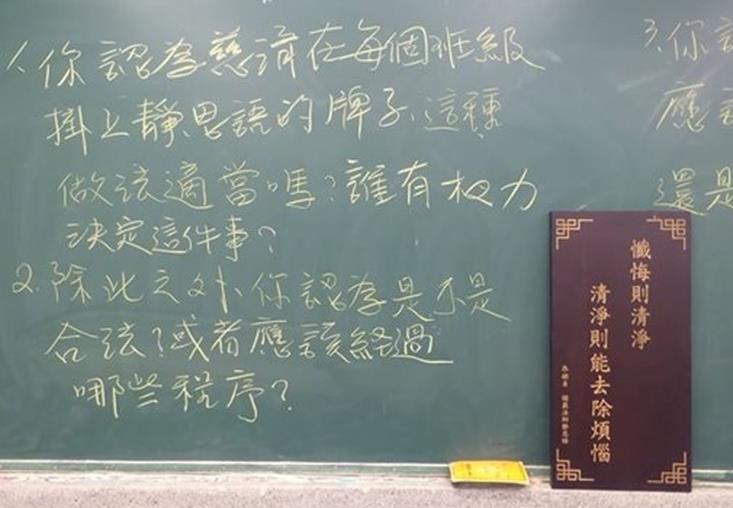 1. 你認為慈濟在每個班級
掛上靜思語的牌子、這種
做法適當嗎?誰有权力
決定這件事?
2. 除此之外、你認為是不是
合法?或者應該經過
哪些程序?
3. 你
應
還是
懺悔則清淨
清淨則能去除煩惱